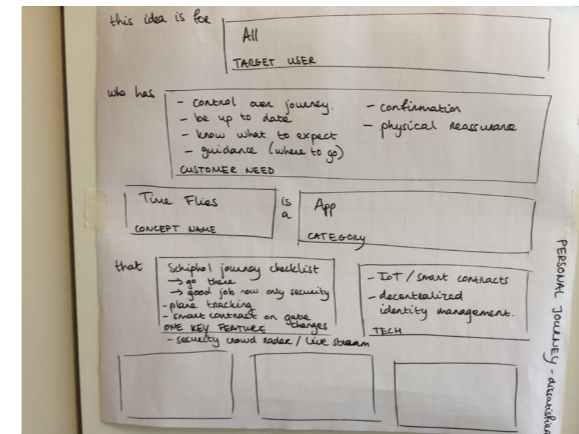 this idea is for
All
TARGET USER
who has
- control over journey.
- be up to date
- know what to expect
- guidance (where to go)
- confirmation
- physical reassurance
CUSTOMER NEED
Time Flies
CONCEPT NAME
is a
App
CATEGORY
that
Schiphol journey checklist
→ go there
→ good job now only security
- plane tracking
- smart contract on gate changes
ONE KEY FEATURE
- security crowd radar / live stream
- IoT / smart contracts
- decentralized
identity management.
TECH
PERSONAL JOURNEY -